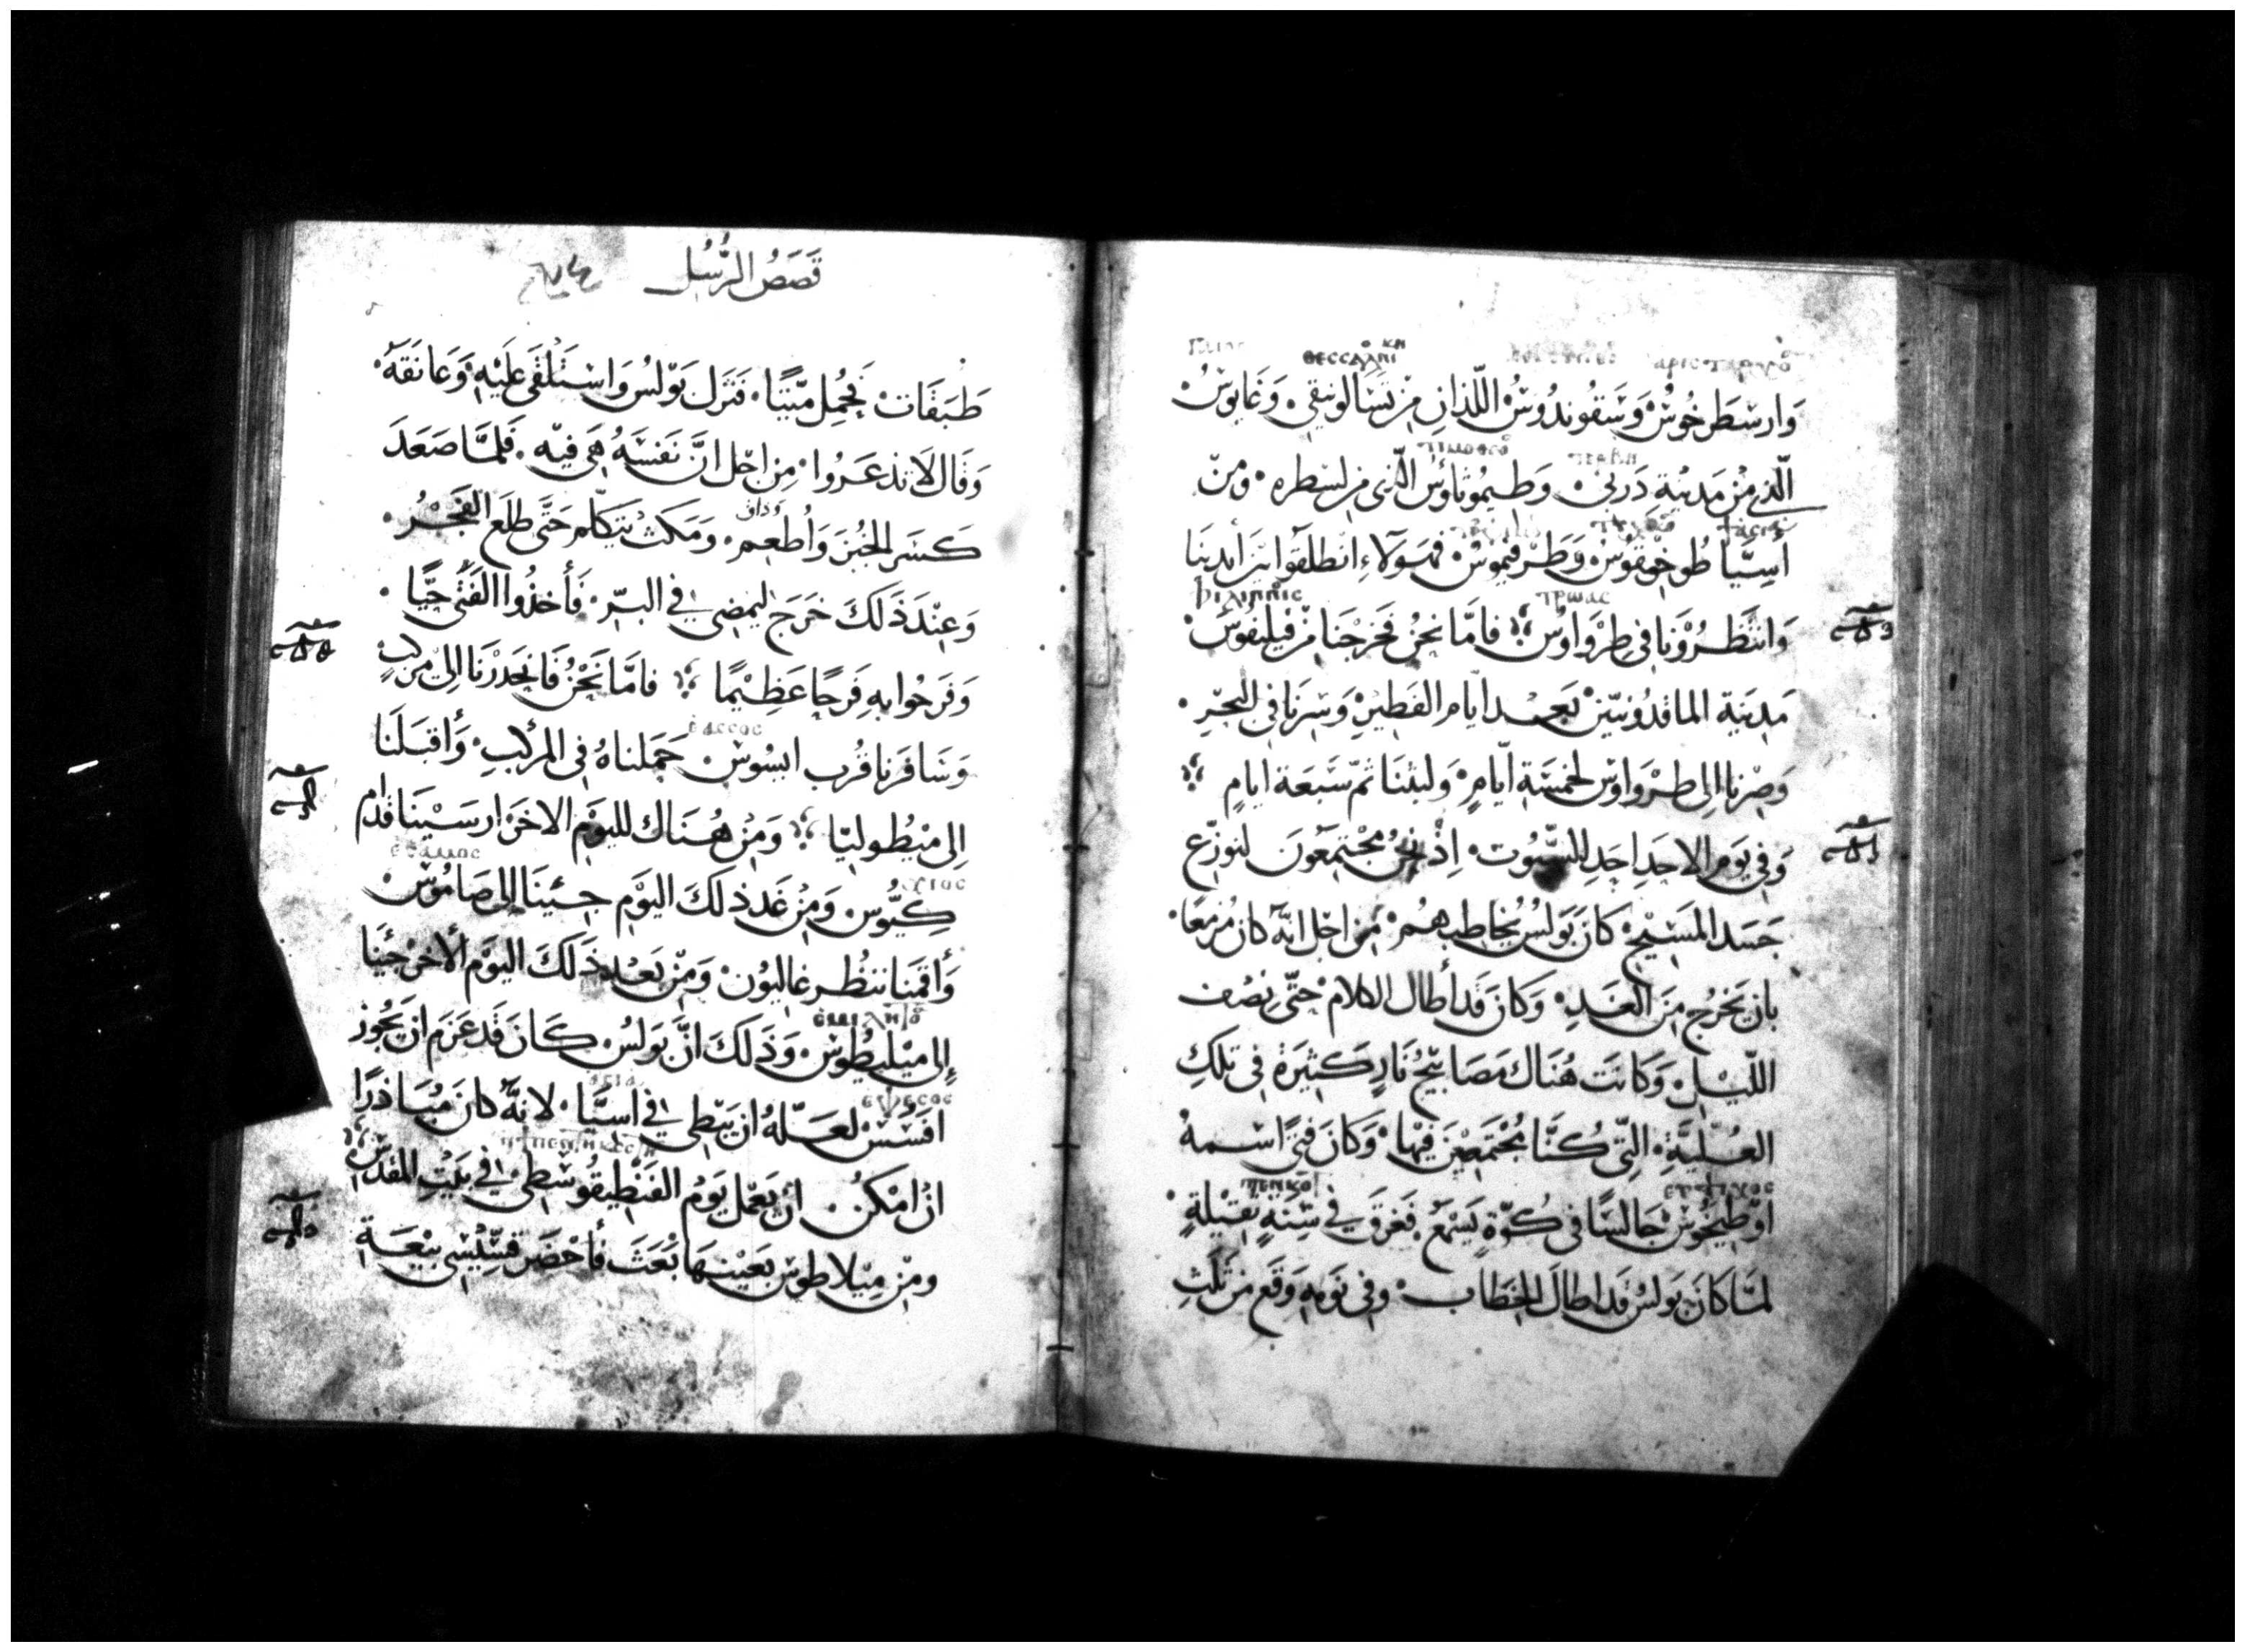 وَارسْطَرخُوسْ وَسَقُوندُوسُ اللّذانِ مِنْ تَسَالونيقي وَغَايوسُ
الّذي مِنْ مَدينَةِ دَربي وَطيمُوثاوُس الّذي من لسطره ومن
أسِيَّا طُوخيقوسْ وَطرفيموسْ فهَولَاءِ انْطلَقوا بَيْنَ أيْدينَا
وَانتَظرُوْنَا في طِرْوَاوسْ فامَّا نحنُ فَخرَجْنَا مِنْ فيليفوس
مَدينَة الماقدُونيّينْ بَعد ايّام الفَطيرِ وَسِرنَا في البَحْرِ
وَصِرْنا الى طرْوَاوسْ لخمسَةِ ايّامٍ وَلبثنَا ثمّ سَبعَة ايامٍ
وَفي يَوم الاحَدِ احَدِ السّبُوت اِذْ نحنُ مجْتمعُونَ لنوَزّع
جَسَد المَسيْح كانَ بَولسُ يُخاطبهُمْ مِن اجْل انّه كانَ مُزمعًا
بان يَخرُج مِنَ الغَدِ وَكانَ قَد أطال الكلام حَتّى نِصْف
اللّيْل وَكانَت هُنَاك مَصَابيْح نَارٍ كثيرَة في تلكِ
العُلّيَّةِ التي كُنّا مجْتمعْينَ فيها وَكانَ فتىً اسْمهُ
اوْطيخُوسْ جَالسًا في كُوّةٍ يَسمَع فغرق في سِنَةٍ ثقيْلةٍ
لمّا كانَ بَولسُ قَد اطالَ الخطَاب وفي نَومهِ وَقع من ثلثِ
قَصَصُ الرُّسُل
طَبَقَات فَحُمِل مَيّتًا فَنزَل بَولسُ وَاسْتَلقَى عَلَيْهِ وَعَانَقَهُ
وَقَال لَا تذعَرُوا مِن اجْل انَّ نَفسَهُ هي فيه فَلمَّا صَعَدَ
وَذاق
كسَر الخُبْزَ وَأطعم وَمَكث يَتكلّم حَتَّى طلَع الفَجْرُ
وَعِنْدَ ذَلكَ خرَجَ ليمضي في البَرّ فَأخذُوا الفَتَى حَيًّا
وَفَرحُوا به فِرَحًا عَظِيْمًا فامَّا نَحْنُ فَانحَدَرْنَا الى مَركبٍ
وَسَافَرنا قُرب ايسُوسْ حَمَلناهُ في المرْكبِ وَأقبَلنَا
الى ميْطُولينا وَمِنْ هُنَاك لليَوْم الاخَر ارسَيْنَا قدّام
كيُّوس وَمِنْ غَد ذلكَ اليَوْم جئنَا الى صَامُوسْ
وَأقمنا ننتظر غاليُون وَمِنْ بَعْد ذَلكَ اليَوْم الأخر جئنَا
إلى ميْليطُوس وَذَلكَ انَّ بَولسُ كانَ قَد عَزم ان يَجُوز
افَسُسْ لعَلّهُ ان يَبْطي في اسيَّا لانهُ كانَ مُبَاذرًا
انْ امْكنْ انْ يَعْمل يَومُ الفَنْطيقوسْطي في بَيْت المقدسْ
ومِنْ ميْلاطوس بعَيْنهَا بَعَثَ فأحْضَر قسّيسي بيْعَة